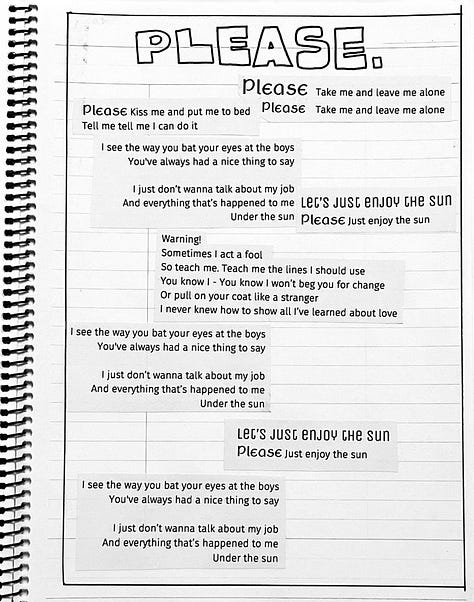 PLEASE.
Please Take me and leave me alone
Please Take me and leave me alone
Please Kiss me and put me to bed
Tell me tell me I can do it
I see the way you bat your eyes at the boys
You've always had a nice thing to say
I just don't wanna talk about my job
And everything that's happened to me
Under the sun
Let's just enjoy the sun
Please Just enjoy the sun
Warning!
Sometimes I act a fool
So teach me. Teach me the lines I should use
You know I - You know I won't beg you for change
Or pull on your coat like a stranger
I never knew how to show all I've learned about love
I see the way you bat your eyes at the boys
You've always had a nice thing to say
I just don't wanna talk about my job
And everything that's happened to me
Under the sun
Let's just enjoy the sun
Please Just enjoy the sun
I see the way you bat your eyes at the boys
You've always had a nice thing to say
I just don't wanna talk about my job
And everything that's happened to me
Under the sun